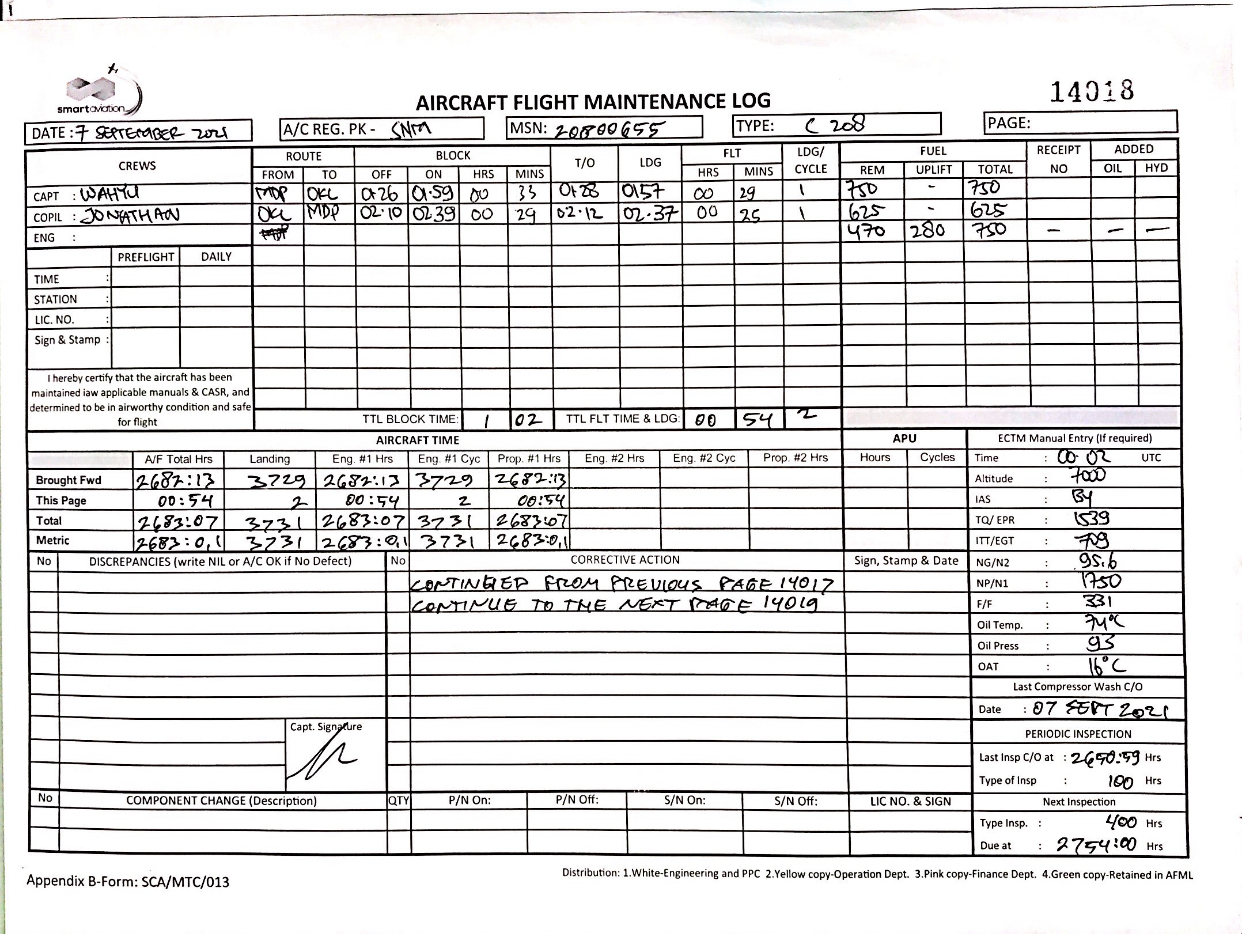 smartaviation
AIRCRAFT FLIGHT MAINTENANCE LOG
14018
DATE : 7 SEPTEMBER 2021 A/C REG. PK - SNM MSN: 20800655 TYPE: C 208 PAGE:
CREWS ROUTE BLOCK T/O LDG FLT LDG/ CYCLE FUEL RECEIPT NO ADDED
FROM TO OFF ON HRS MINS HRS MINS REM UPLIFT TOTAL OIL HYD
CAPT : WAHYU MDP OKL 01:26 01:59 00 33 01:28 01:57 00 29 1 750 - 750
COPIL : JONATHAN OKL MDP 02:10 02:39 00 29 02:12 02:37 00 25 1 625 - 625
ENG : 470 280 750 - - -
PREFLIGHT DAILY
TIME :
STATION :
LIC. NO. :
Sign & Stamp :
I hereby certify that the aircraft has been
maintained iaw applicable manuals & CASR, and
determined to be in airworthy condition and safe
for flight
TTL BLOCK TIME: 1 02 TTL FLT TIME & LDG: 00 54 2
AIRCRAFT TIME APU ECTM Manual Entry (If required)
A/F Total Hrs Landing Eng. #1 Hrs Eng. #1 Cyc Prop. #1 Hrs Eng. #2 Hrs Eng. #2 Cyc Prop. #2 Hrs Hours Cycles Time : 00:02 UTC
Brought Fwd 2682:13 3729 2682:13 3729 2682:13 Altitude : 7000
This Page 00:54 2 00:54 2 00:54 IAS :
Total 2683:07 3731 2683:07 3731 2683:07 TQ/ EPR : 1539
Metric 2683:0,1 3731 2683:0,1 3731 2683:0,1 ITT/EGT : 709
No DISCREPANCIES (write NIL or A/C OK if No Defect) No CORRECTIVE ACTION Sign, Stamp & Date NG/N2 : 95.6
CONTINUED FROM PREVIOUS PAGE 14017 NP/N1 : 1750
CONTINUE TO THE NEXT PAGE 14019 F/F : 331
Oil Temp. : 74°C
Oil Press : 93
OAT : 16°C
Last Compressor Wash C/O
Date : 07 SEPT 2021
Capt. Signature
PERIODIC INSPECTION
Last Insp C/O at : 2650:59 Hrs
Type of Insp : 100 Hrs
No COMPONENT CHANGE (Description) QTY P/N On: P/N Off: S/N On: S/N Off: LIC NO. & SIGN Next Inspection
Type Insp. : 400 Hrs
Due at : 2754:00 Hrs
Appendix B-Form: SCA/MTC/013
Distribution: 1.White-Engineering and PPC 2.Yellow copy-Operation Dept. 3.Pink copy-Finance Dept. 4.Green copy-Retained in AFML